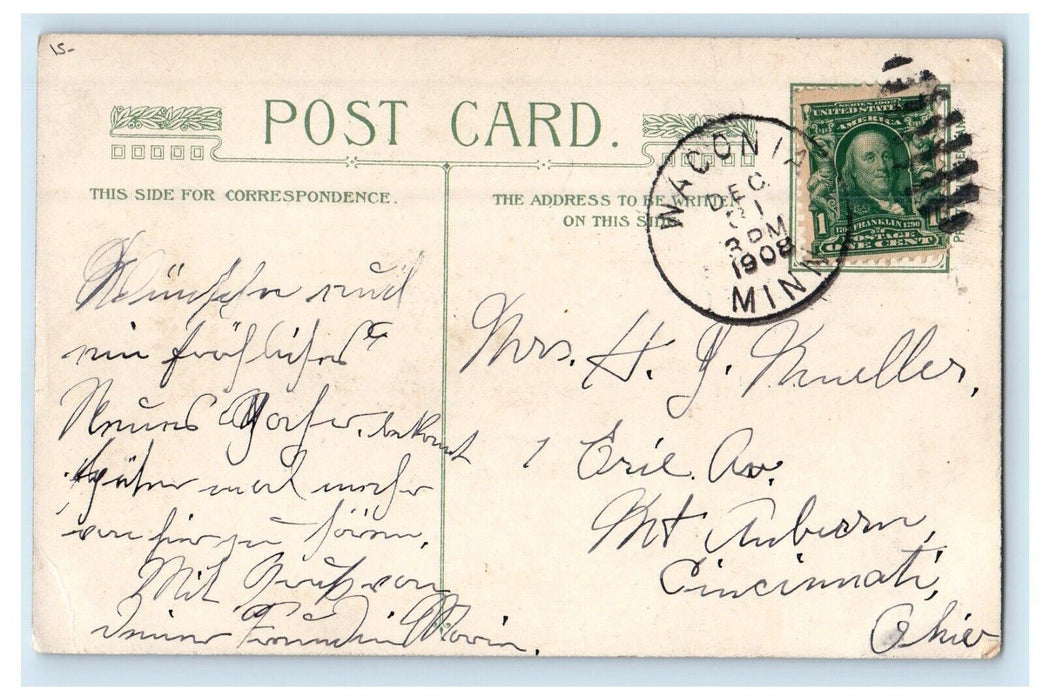 15-
POST CARD.
THIS SIDE FOR CORRESPONDENCE.
THE ADDRESS TO BE WRITTEN
ON THIS SIDE
WACONIA
DEC
3 PM
1908
MINN
SERIES 1902
UNITED STATES
AMERICA
FRANKLIN 1790
POSTAGE
1
ONE CENT
Wünsche euch
ein fröhliches
Neues Jahr. bekomt
später mal mehr
von hier zu hören.
Mit Gruß von
Deiner Freundin Maria.
Mrs. H. J. Mueller.
1 Erie Av.
Mt Auburn,
Cincinnati,
Ohio